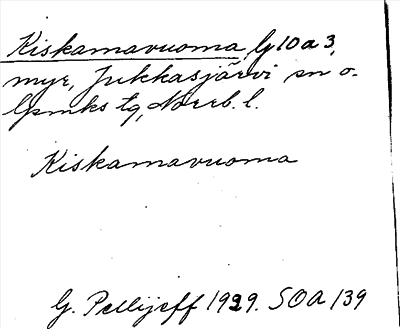 Kiskamavuoma, G 10 a 3,
myr, Jukkasjärvi sn o.
lpmks tg, Norrb. l.
Kiskamavuoma
G. Pellijeff 1939. SOA 139